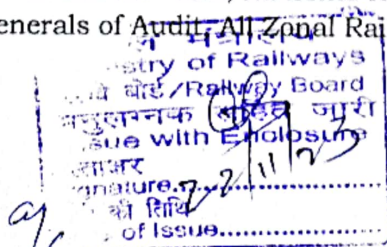 enerals of Audit, All Zonal Rai
stry of Railways
बोर्ड/Railway Board
सहित जारी
sue with Enclosure
gnature..........
22/11/23
की तिथि
of Issue..........